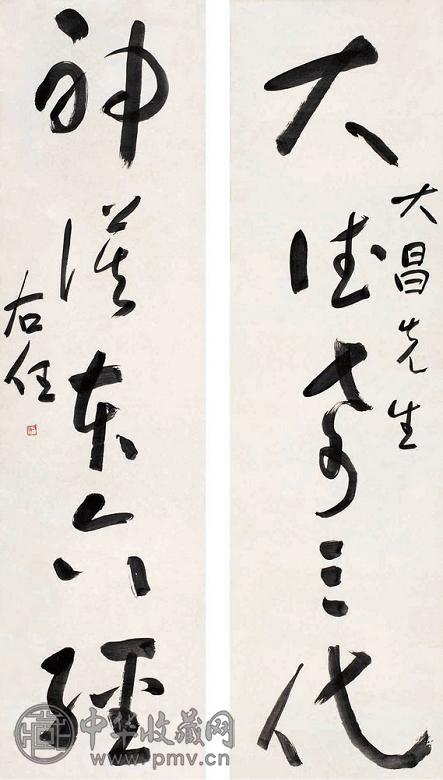 大昌先生
大德三代
神謨本六經
右任
中华收藏网
www.pmv.cn